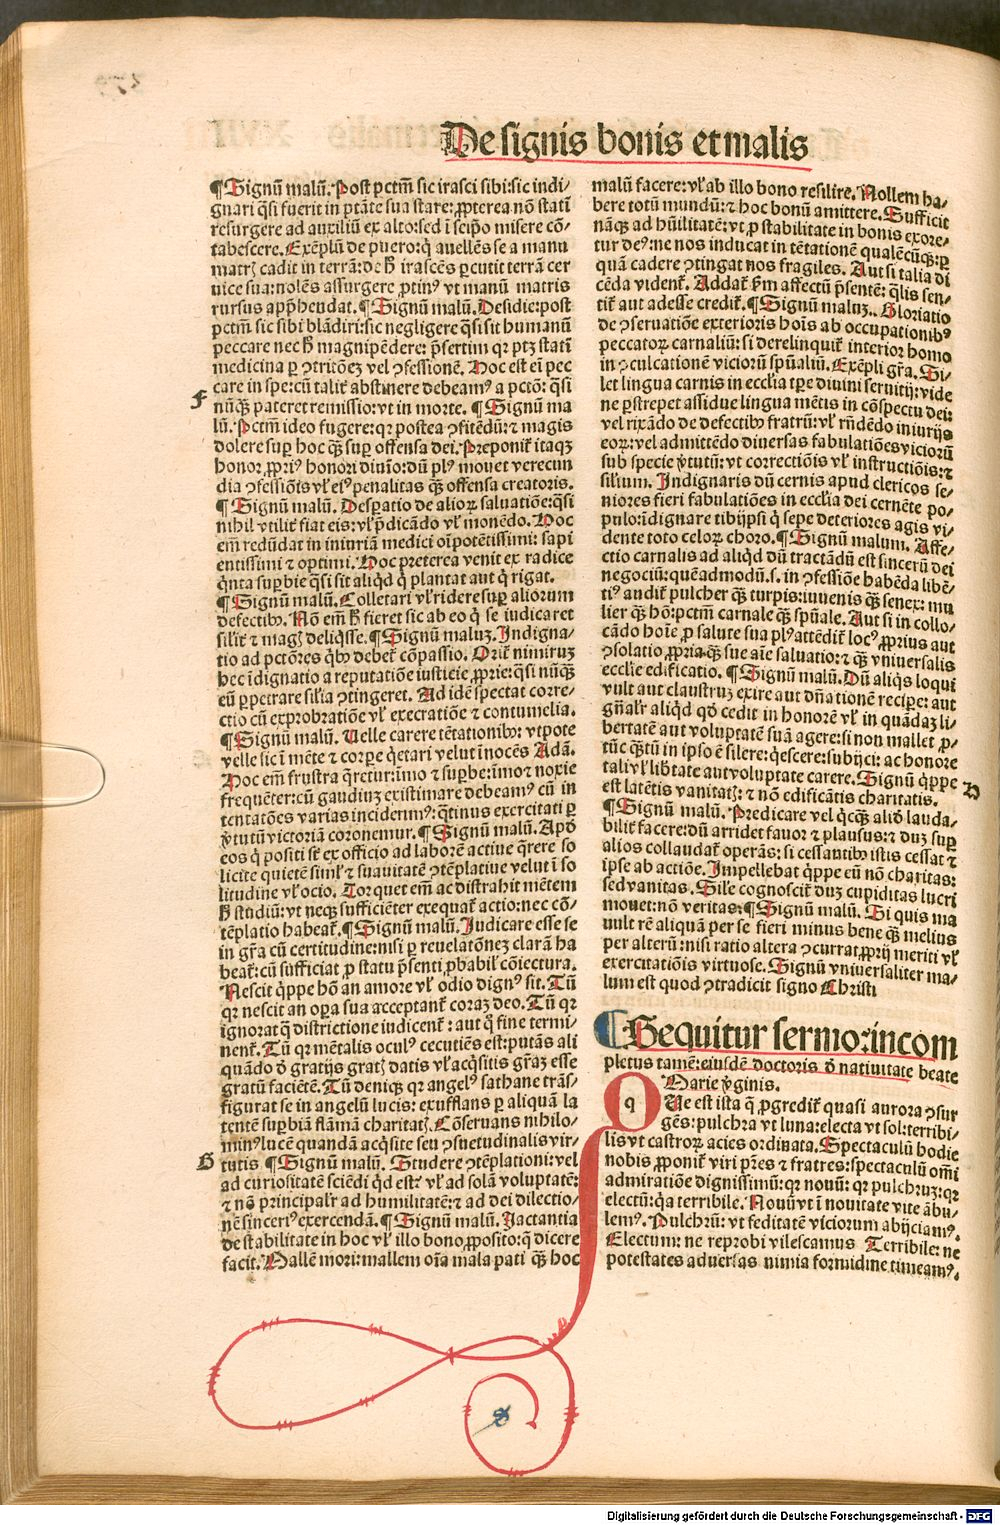 De signis bonis et malis
¶ Signū malū. Post pctm̄ sic irasci sibi: sic indi-
gnari q̄si fuerit in ptāte sua stare: ꝓpterea nō stati
resurgere ad auxiliū ex alto: sed i seipō misere cō-
tabescere. Exēplū de puero: q̇ auellēs se a manu
matrꝭ cadit in terrā: de h̄ irascēs ꝑcutit terrā cer
uice sua: nolēs assurgere ꝓtinꝰ vt manū matris
rursus app̄hendat. ¶ Signū malū. Desidie: post
pctm̄ sic sibi blādiri: sic negligere q̄si sit humanū
peccare nec h̄ magnipēdere: p̄sertim qr ptꝫ stati
medicina ꝑ ꝯtritōeꝫ vel ꝯfessionē. Hoc est ei pec
care in spe: cū talit̄ abstinere debeamꝰ a pctō: q̄si
F
nūq̄ꝫ pateret remissio: vt in morte. ¶ Signū ma
lū. Pctm̄ ideo fugere: qr postea ꝯfitēdū: ⁊ magis
dolere suꝑ hoc q̄ꝫ suꝑ offensa dei. Preponit̄ itaqꝫ
honor ꝓpriꝰ honori diuīo: dū plꝰ mouet verecun
dia ꝯfessiōis vł eiꝰ penalitas q̄ꝫ offensa creatoris.
¶ Signū malū. Desꝑatio de alioꝝ saluatiōe: q̄si
nihil vtilit̄ fiat eis: vł p̄dicādo vł monēdo. Hoc
em̄ redūdat in iniuriā medici oīpotētissimi: sapi
entissimi ⁊ optimi. Hoc preterea venit ex radice
q̇nta suꝑbie q̄si sit aliq̇d q̇ plantat aut q̇ rigat.
¶ Signū malū. Colletari vł ridere suꝑ aliorum
defectibꝰ. Nō em̄ h̄ fieret sic ab eo q̇ se iudicaret
silit̄ ⁊ magꝭ deliq̄sse. ¶ Signū maluꝫ. Indigna-
tio ad pctōres q̇bꝰ debet̄ cōpassio. Orit̄ nimiruꝫ
hec īdignatio a reputatiōe iusticie ꝓprie: q̄si nūq̄ꝫ
eū ꝑpetrare silia ꝯtingeret. Ad idē spectat corre-
ctio cū exprobratiōe vł execratiōe ⁊ contumelia.
¶ Signū malū. Uelle carere tētationibꝰ: vtpote
velle sic ī mēte ⁊ corꝑe q̇etari velut īnocēs Adā.
Hoc em̄ frustra q̄retur: īmo ⁊ suꝑbe: īmo ⁊ noxie
frequēter: cū gaudiuꝫ existimare debeamꝰ cū in
tentatōes varias inciderimꝰ: q̄tinus exercitati ꝑ
ꝟtutū victoriā coronemur. ¶ Signū malū. Apd
eos q̇ positi st̄ ex officio ad laborē actiue q̄rere so
licite quietē siml̄ ⁊ suauitatē ꝯtēplatiue velut ī so
litudine vł ocio. Torquet em̄ ac distrahit mētem
h̄ studiū: vt neqꝫ sufficiēter exequat̄ actio: nec cō-
tēplatio habeat̄. ¶ Signū malū. Iudicare esse se
in gr̄a cū certitudine: nisi ꝑ reuelatōneꝫ clarā ha
beat̄: cū sufficiat ꝓ statu p̄senti ꝓbabił cōiectura.
Nescit q̇ppe hō an amore vł odio dignꝰ sit. Tū
qr nescit an oꝑa sua acceptant̄ coraꝫ deo. Tū qr
ignorat q̄ districtione iudicent̄: aut q̇ fine termi-
nent̄. Tū qr mētalis oculꝰ cecutiēs est: putās ali
quādo ꝺ gratijs gratꝭ datis vł acq̇sitis gr̄aꝫ esse
gratū faciētē. Tū deniqꝫ qr angelꝰ sathane trās-
figurat se in angelū lucis: exufflans ꝑ aliquā la
tentē suꝑbiā flāmā charitatꝭ. Cōseruans nihilo-
minꝰ lucē quandā acq̇site seu ꝯsuetudinalis vir-
G
tutis ¶ Signū malū. Studere ꝯtēplationi: vel
ad curiositatē sciēdi q̇d est: vł ad solā voluptatē:
⁊ nō principalr̄ ad humilitatē: ⁊ ad dei dilectio-
nē sinceriꝰ exercendā. ¶ Signū malū. Iactantia
de stabilitate in hoc vł illo bono ꝓposito: q̇ dicere
facit. Mallē mori: mallem oīa mala pati q̄ꝫ hoc
malū facere: vł ab illo bono resilire. Nollem ha-
bere totū mundū: ⁊ hoc bonū amittere. Sufficit
nāqꝫ ad hūilitatē: vt ꝓ stabilitate in bonis exore-
tur deꝰ: ne nos inducat in tētationē qualēcūqꝫ: ꝑ
quā cadere ꝯtingat nos fragiles. Aut si talia di
cēda vident̄. Addat̄ ẜm affectū p̄sentē: q̄lis sen-
tit̄ aut adesse credit̄. ¶ Signū maluꝫ. Gloriatio
de ꝯseruatiōe exterioris hoīs ab occupationibꝰ
peccatoꝝ carnaliū: si derelinquit̄ interior homo
in ꝯculcationē viciorū spūaliū. Exēpli gr̄a. Si-
let lingua carnis in ecclīa tꝑe diuini seruitij: vide
ne ꝑstrepet assidue lingua mētis in cōspectu dei:
vel rixādo de defectibꝰ fratrū: vł r̄ndēdo iniurijs
eoꝝ: vel admittēdo diuersas fabulatiōes viciorū
sub specie ꝟtutū: vt correctiōis vł instructiōis: ⁊
silium. Indignaris dū cernis apud clericos se-
niores fieri fabulatiōes in ecclīa dei cernēte po-
pulo: īdignare tibijpsi q̇ sepe deteriores agis vi-
dente toto celoꝝ choro. ¶ Signū malum. Affe-
ctio carnalis ad aliq̇d dū tractādū est sincerū dei
negociū: quēadmodū .s. in ꝯfessiōe habēda libē-
tiꝰ audit̄ pulcher q̄ꝫ turpis: iuuenis q̄ꝫ senex: mu
lier q̄ꝫ hō: pctm̄ carnale q̄ꝫ spūale. Aut si in collo-
cādo hoīe ꝓ salute sua plꝰ attēdit̄ locꝰ ꝓprius aut
ꝯsolatio ꝓpria q̄ꝫ sue aīe saluatio: ⁊ q̄ꝫ vniuersalis
ecclīe edificatio. ¶ Signū malū. Dū aliq̇s loqui
vult aut claustruꝫ exire aut dn̄ationē reciꝑe: aut
gn̄alr̄ aliq̇d qd̄ cedit in honorē vł in quādaꝫ li-
bertatē aut voluptatē suā agere: si non mallet ꝓ-
tūc q̄tū in ipso ē silere: q̇escere: subijci: ac honore
tali vł lib̄tate aut voluptate carere. Signū q̇ppe
H
est latētis vanitatꝭ: ⁊ nō edificātis charitatis.
¶ Signū malū. Predicare vel q̇cq̄ꝫ aliđ lauda-
bilit̄ facere: dū arridet fauor ⁊ plausus: ⁊ duꝫ suꝑ
alios collaudat̄ operās: si cessantibꝰ istis cessat ⁊
ipse ab actiōe. Impellebat q̇ppe eū nō charitas:
sed vanitas. Siłe cognoscit̄ duꝫ cupiditas lucri
mouet: nō veritas. ¶ Signū malū. Si quis ma
uult rē aliquā per se fieri minus bene q̄ꝫ melius
per alterū: nisi ratio altera ꝯcurrat ꝓprij meriti vł
exercitatiōis virtuose. Signū vniuersaliter ma-
lum est quod ꝯtradicit signo Christi
¶ Sequitur sermo: incom
pletus tamē: eiusdē doctoris ꝺ natiuitate beate
Marie ꝟginis.
q Ue est ista q̄ ꝓgredit̄ quasi aurora ꝯsur
gēs: pulchra vt luna: electa vt sol: terribi-
lis vt castroꝝ acies ordinata. Spectaculū hodie
nobis ꝓponit̄ viri pr̄es ⁊ fratres: spectaculū om̄i
admiratiōe dignissimū: qr nouū: qr pulchruꝫ: qr
electū: q̇a terribile. Nouū vt ī nouitate vite ābu-
lemꝰ. Pulchrū: vt feditatē viciorum abijciamꝰ.
Electum: ne reprobi vilescamus Terribile: ne
potestates aduersas nimia formidine timeamꝰ.
Digitalisierung gefördert durch die Deutsche Forschungsgemeinschaft - DFG